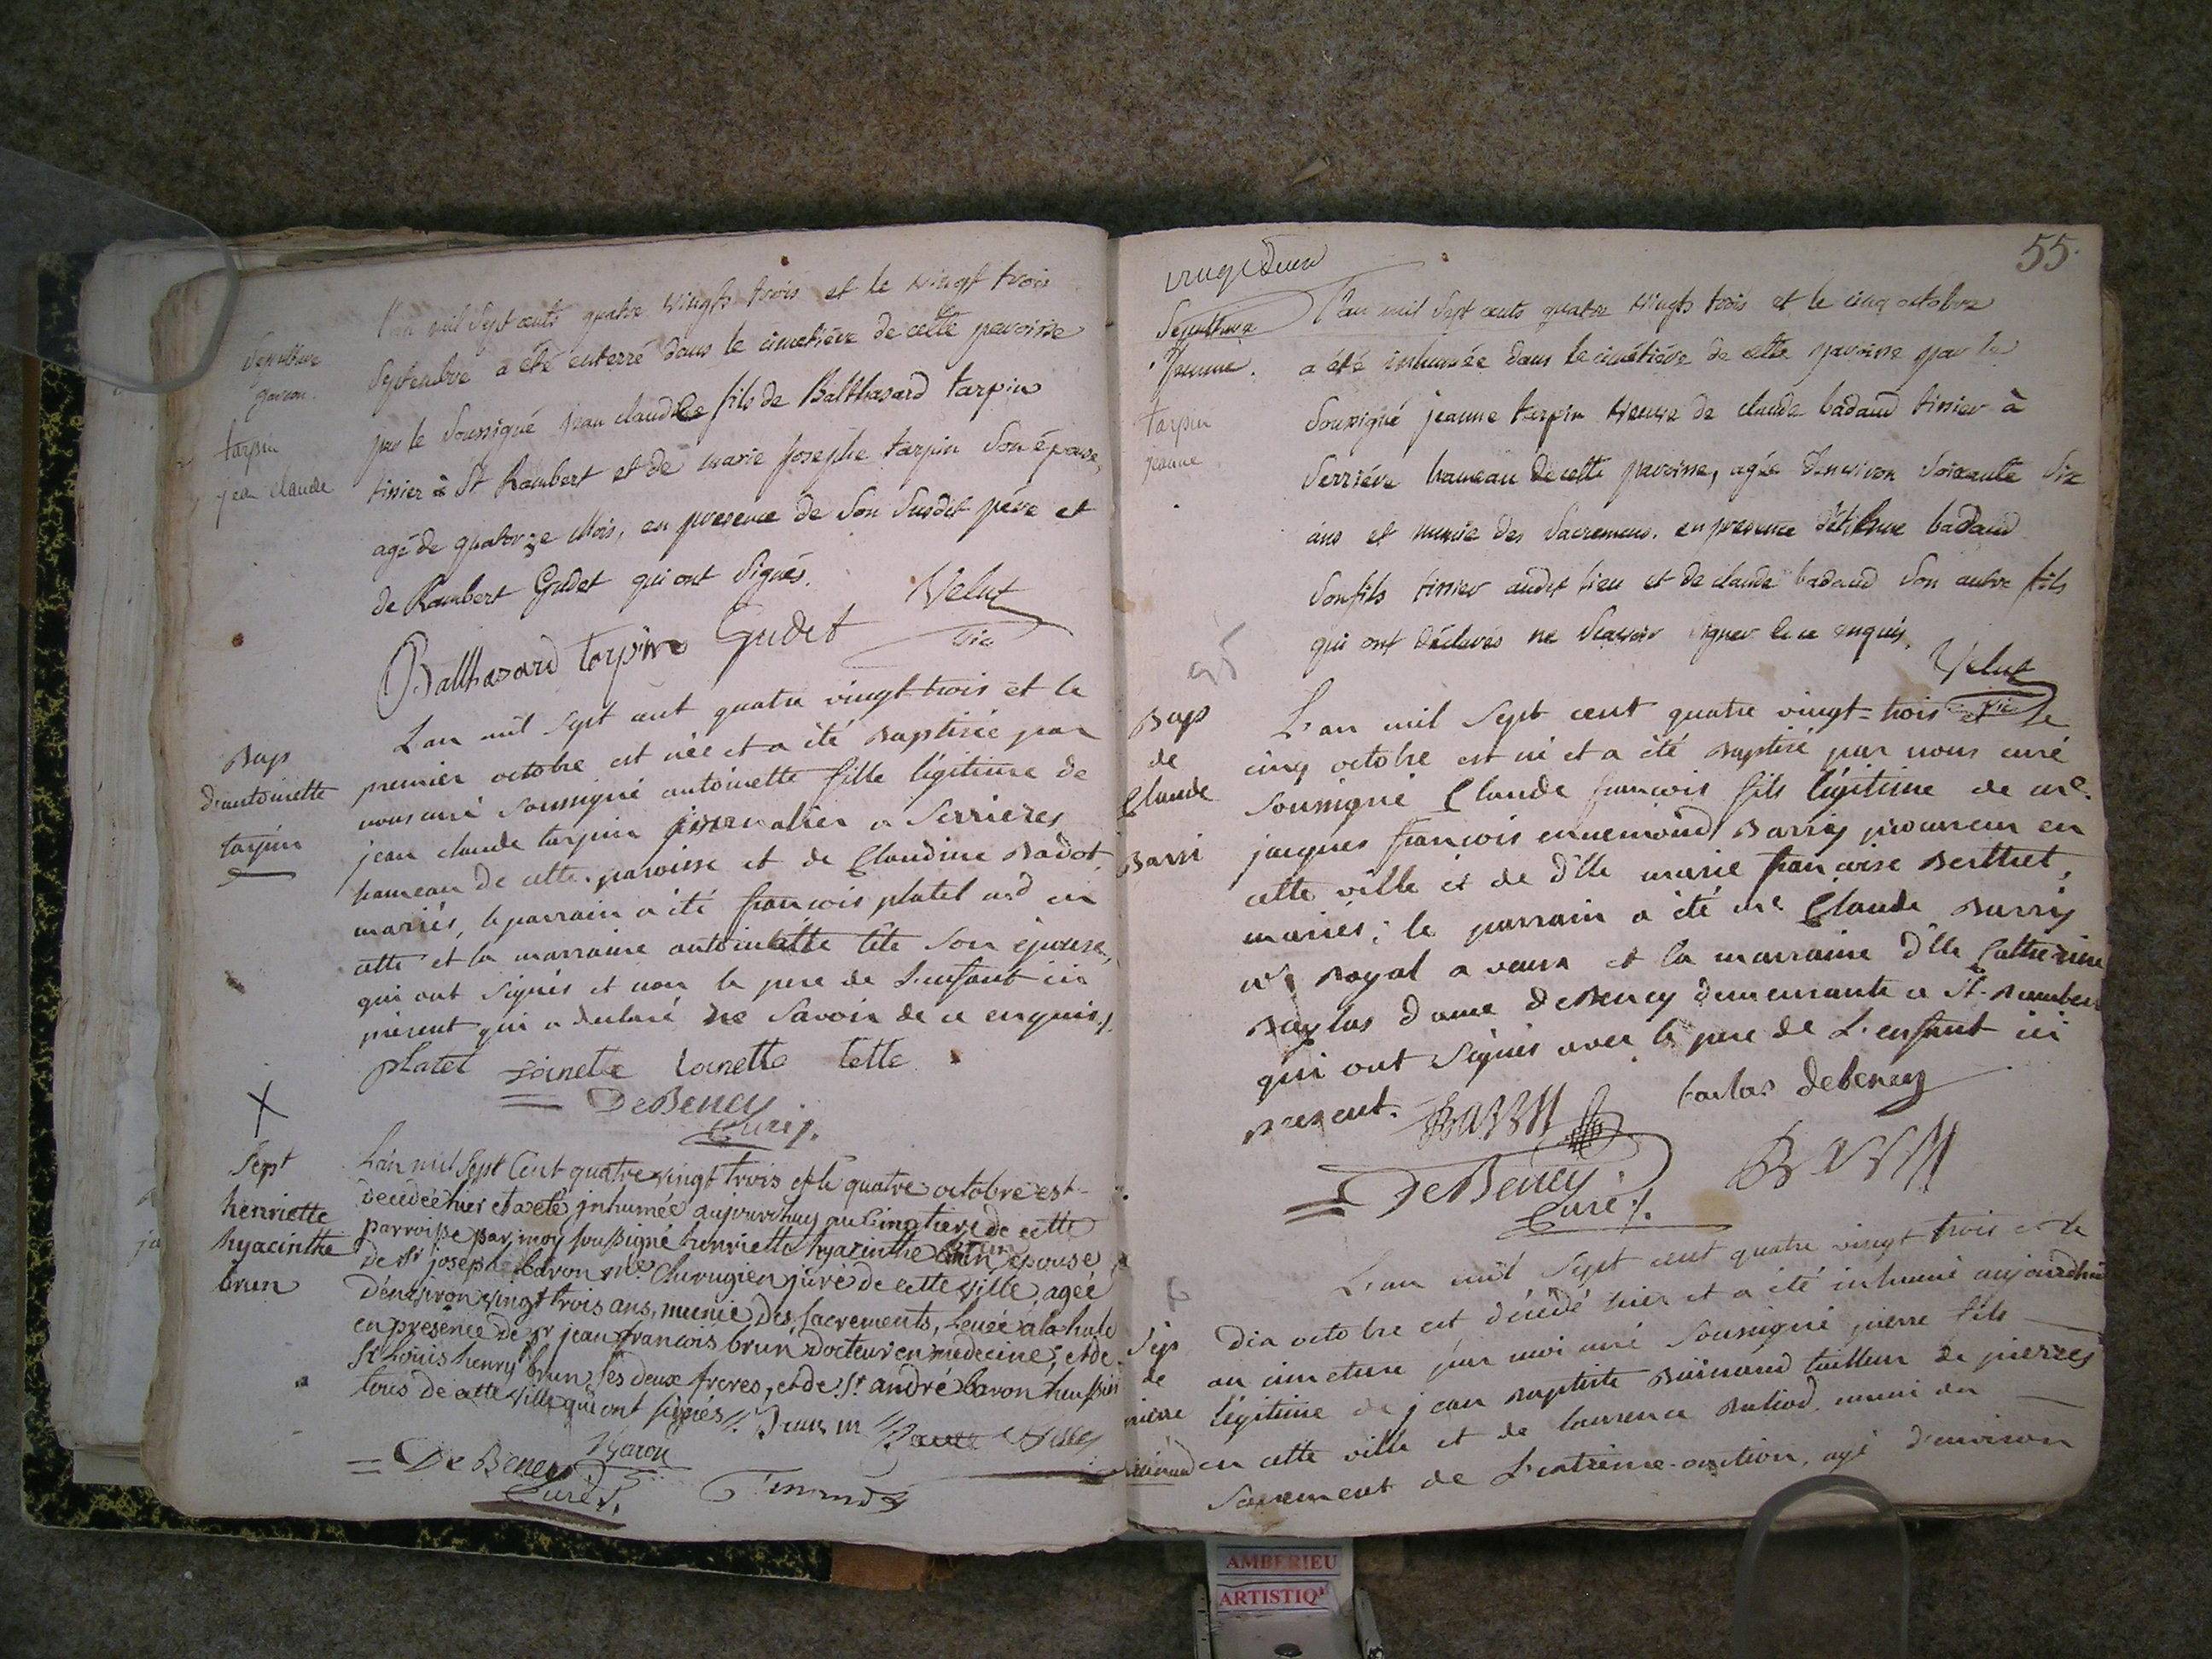 Sepulture
garcon.
tarpin
jean claude
l'an mil Sept cents quatre vingts trois et le vingt trois
Septembre a été enterré dans le cimetière de cette paroisse
par le Soussigné jean claude fils de Balthasard tarpin
tissier à St Rambert et de marie josephe tarpin Son épouse,
agé de quatorze Mois, en presence de Son Susdit père et
de Rambert Gudet qui ont Signés.
Velut
Balthasard tarpin Gudet
vic
Bap
d'antoinette
tarpin
L'an mil Sept cent quatre vingt-trois et le
premier octobre est née et a été Baptisée par
nous curé Soussigné antoinette fille légitime de
jean claude tarpin a Serrieres
hameau de cette paroisse et de Claudine Badot
mariés, le parrain a été françois platel md en
cette et la marraine antoinette tête Son épouse,
qui ont Signés et non le pere de L'enfant ici
présent qui a declaré ne Savoir de ce enquis./.
platel toinette tette
DeBeney
Curé/.
Sept
henriette
hyacinthe
brun
L'an mil Sept Cent quatre vingt trois et le quatre octobre est
decedée hier et a eté inhumée aujourdhuy au Cimetiere de cette
parroisse par moy soussigné henriette hyacinthe brun epouse
de sr joseph baron me. Chirurgien juré de cette ville, agée
d'environ vingt trois ans, munie des sacrements,
en presence de sr jean françois brun docteur en medecine, et de
sr Louis henry brun ses deux freres, et de Sr andré baron
tous de cette ville qui ont signés //.
Baron
De Beney
Curé/.
55.
vingt deux
Sepulture
femme.
tarpin
jeanne
l'an mil Sept cents quatre vingts trois et le cinq octobre
a été inhumée dans le cimetière de cette paroisse par le
Soussigné jeanne tarpin veuve de claude badaud tissier à
Serriére hameau de cette paroisse, agée d'environ Soixante Six
ans et munie des Sacremens. en presence d'étienne badaud
Son fils tissier audit lieu et de claude badaud Son autre fils
qui ont déclarés ne Scavoir signer de ce enquis.
Velut
vic
Bap
de
Claude
Barri
L'an mil Sept cent quatre vingt-trois et le
cinq octobre est né et a été Baptisé par nous curé
Soussigné Claude françois fils légitime de me.
jacques françois ennemond Barry procureur en
cette ville et de dlle marie françoise Berthet,
mariés; le parrain a été me Claude Barry
Royal a vaux et la marraine dlle Catherine
dame deBeney demeurante a St-Rambert
qui ont Signés avec le pere de L'enfant ici
present.
debeney
DeBeney
Curé/.
Sep
de
pierre
L'an mil Sept cent quatre vingt trois et le
dix octobre est décédé hier et a été inhumé aujourdhui
au cimetiere par moi curé Soussigné pierre fils
légitime de jean Baptiste tailleur de pierres
en cette ville et de laurence muni du
Sacrement de L'extrême-onction, agé d'environ
AMBERIEU
ARTISTIQ